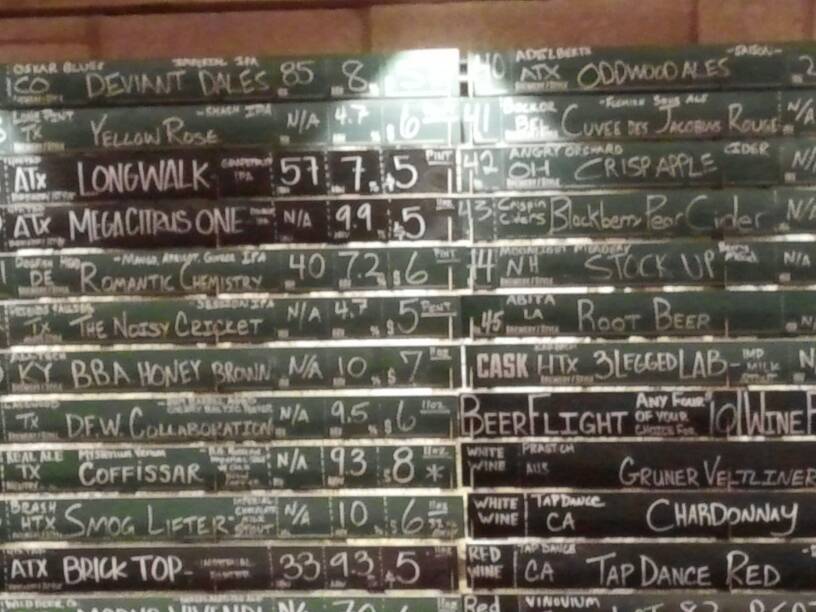 OSKAR BLUES IMPERIAL IPA
CO DEVIANT DALES 85 8
TX YELLOW ROSE N/A 4.7 6
ATX LONGWALK GRAPEFRUIT IPA 57 7. $5 PINT
ATX MEGACITRUS ONE N/A 9.9 $5
-MANGO, APRICOT, GINGER IPA
DE ROMANTIC CHEMISTRY 40 7.2 $6 PINT
SESSION IPA
TX THE NOISY CRICKET N/A 4.7 $5 PINT
KY BBA HONEY BROWN N/A 10 $7
TX DFW COLLABORATION N/A 9.5 $6 11oz
REAL ALE MYSTERIUM VERUM
TX COFFISSAR N/A 9.3 $8 * 11oz
BRASH IMPERIAL CHOCOLATE MILK STOUT
HTX SMOG LIFTER N/A 10 $6
ATX BRICK TOP- 33 9.3 $5
40 ADELBERTS -SAISON-
ATX ODDWOOD ALES
41 -FLEMISH SOUR ALE
BEL CUVEE DES JACOBINS ROUGE N/A
42 ANGRY ORCHARD CIDER
OH CRISP APPLE N/
43 Crispin Ciders Blackberry Pear Cider N/A
44 MOONLIGHT MEADERY
NH STOCK UP N/A
45 ABITA
LA ROOT BEER
CASK HTX 3 LEGGED LAB- IMP MILK N
BEER FLIGHT ANY FOUR OF YOUR CHOICE FOR 10 WINE F
WHITE WINE GRUNER VELTLINER
WHITE WINE TAP DANCE CA CHARDONNAY
RED WINE TAP DANCE CA TAP DANCE RED
Red VINOVIUM